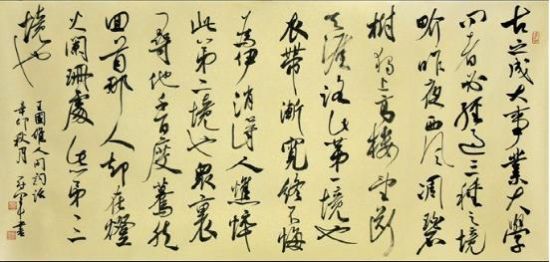 古之成大事業大學
问者必經过三種之境
界昨夜西风凋碧
樹獨上高楼望断
天涯路此第一境也
衣帶漸寬终不悔
為伊消得人憔悴
此第二境也衆裏
尋他千百度驀然
回首那人却在燈
火闌珊處此第三
境也
王國維人间詞話
辛卯秋月 書